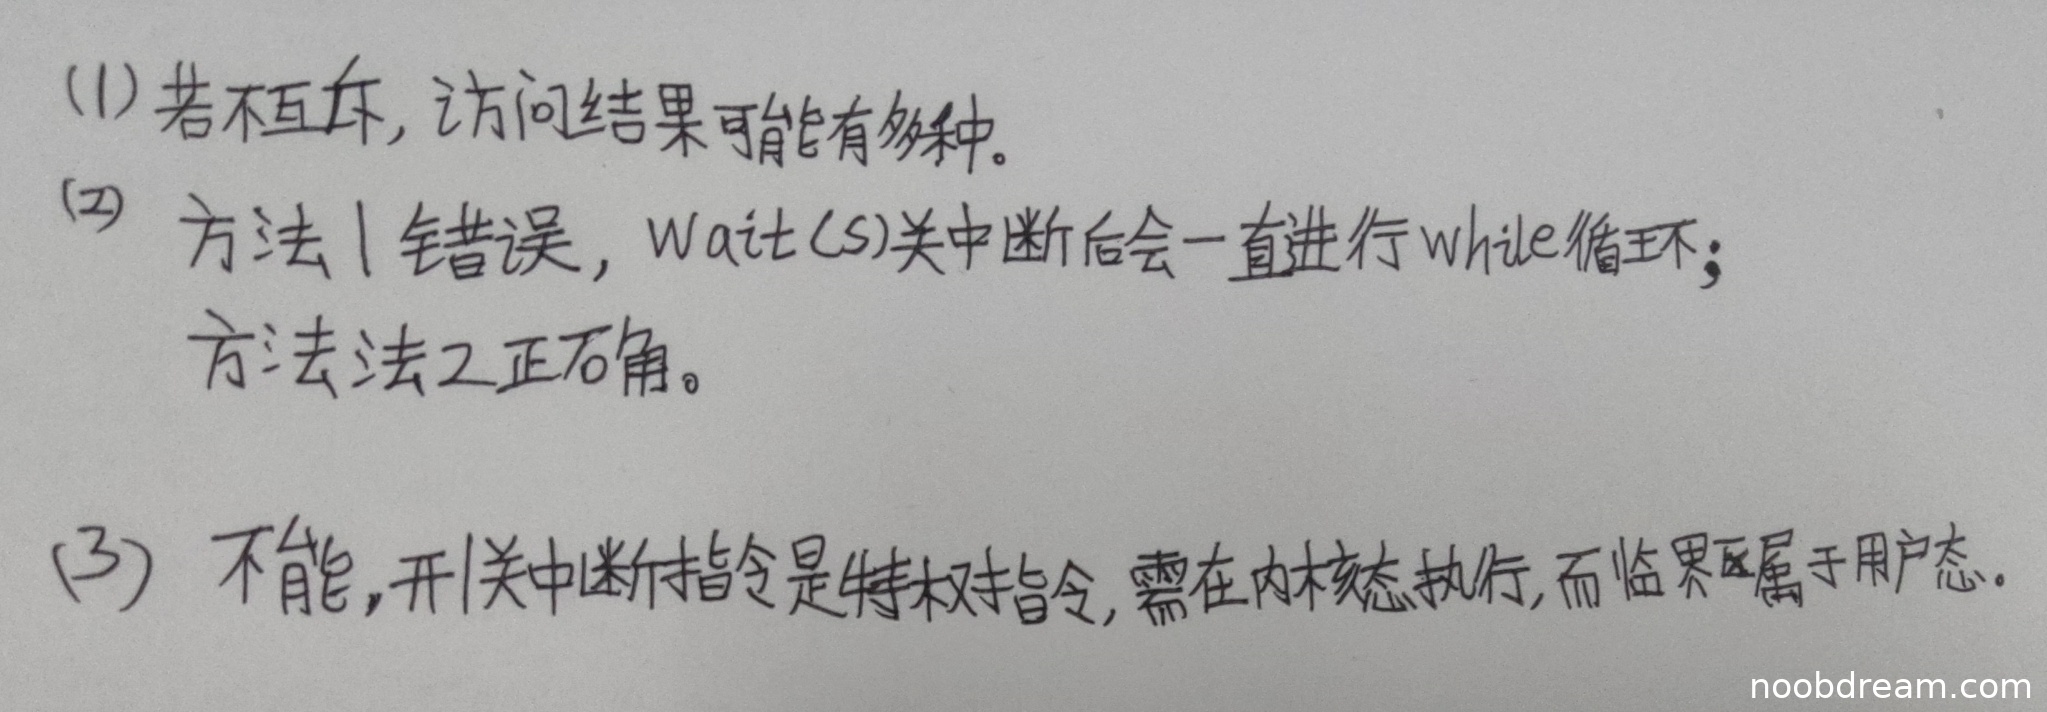 (1) 若不互斥, 访问结果可能有多种。
(2) 方法1错误, Wait(S)关中断后会一直进行while循环;
方法法2正确。
(3) 不能, 开/关中断指令是特权指令, 需在内核态执行, 而临界区属于用户态。
noobdream.com